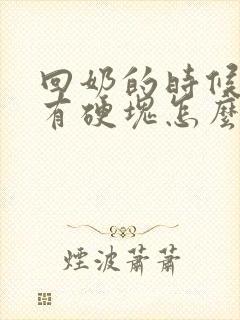 回奶的時候
有硬塊怎麼
煙波蕭蕭